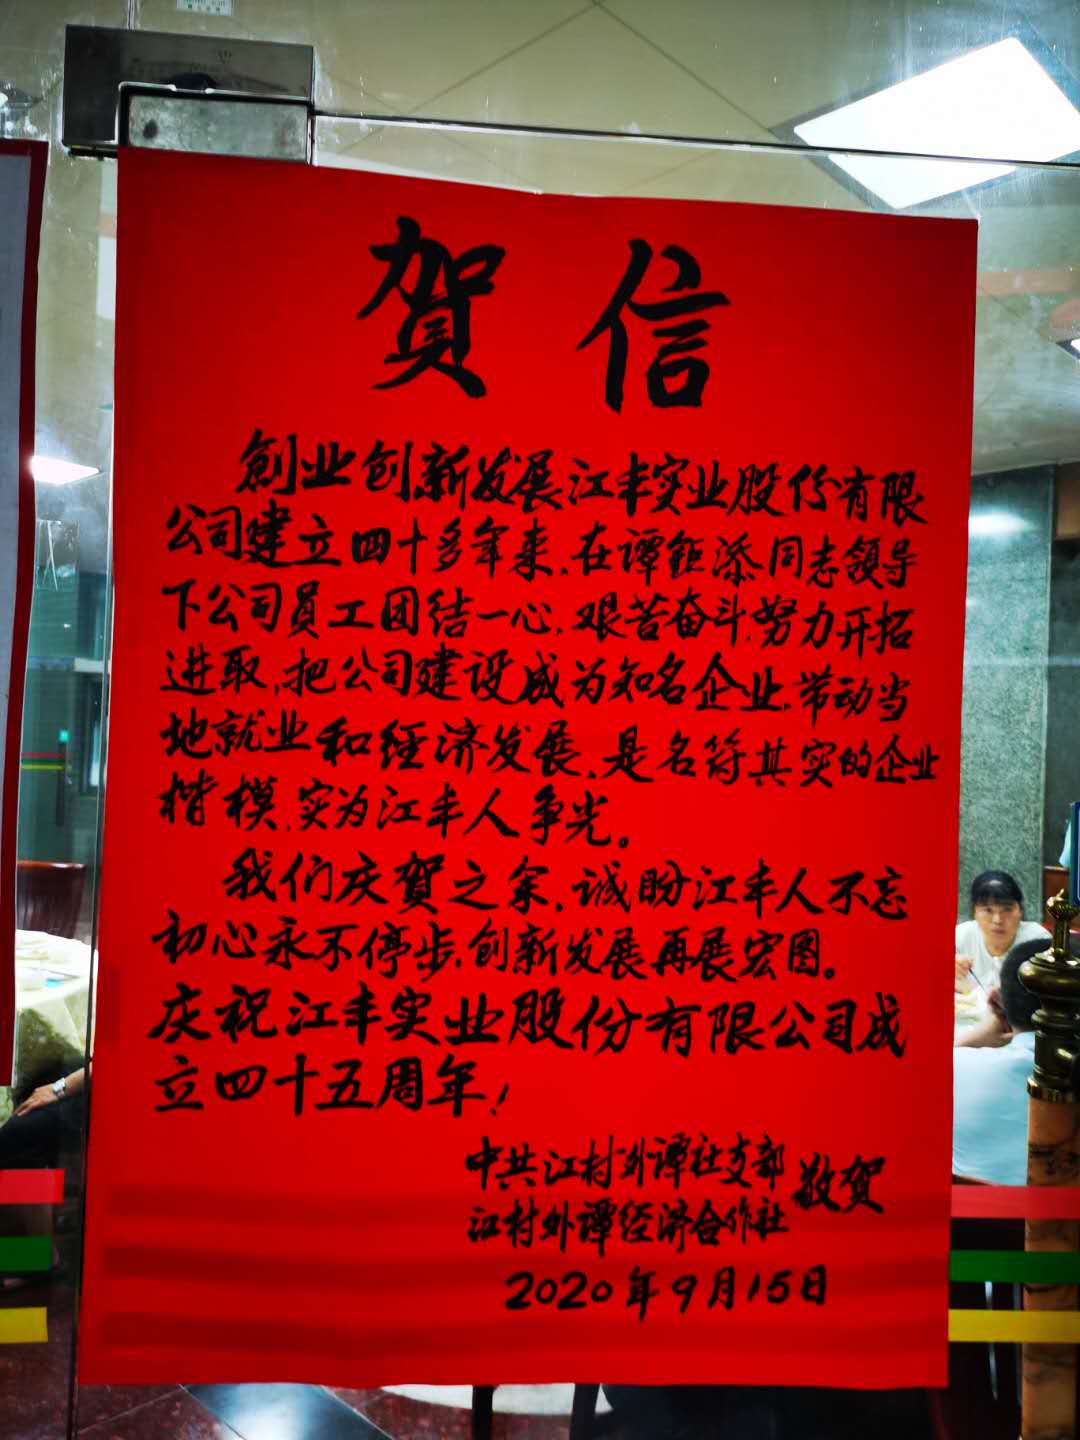 賀信
創业创新发展江丰实业股份有限
公司建立四十多年来,在谭钜添同志领导
下公司员工团结一心,艰苦奋斗,努力开拓
进取,把公司建设成为知名企业,带动当
地就业和经济发展,是名符其实的企业
楷模,实为江丰人争光。
我们庆賀之余,诚盼江丰人不忘
初心永不停步,创新发展再展宏图。
庆祝江丰实业股份有限公司成
立四十五周年!
中共江村外谭社支部
江村外谭经济合作社
敬贺
2020年9月15日